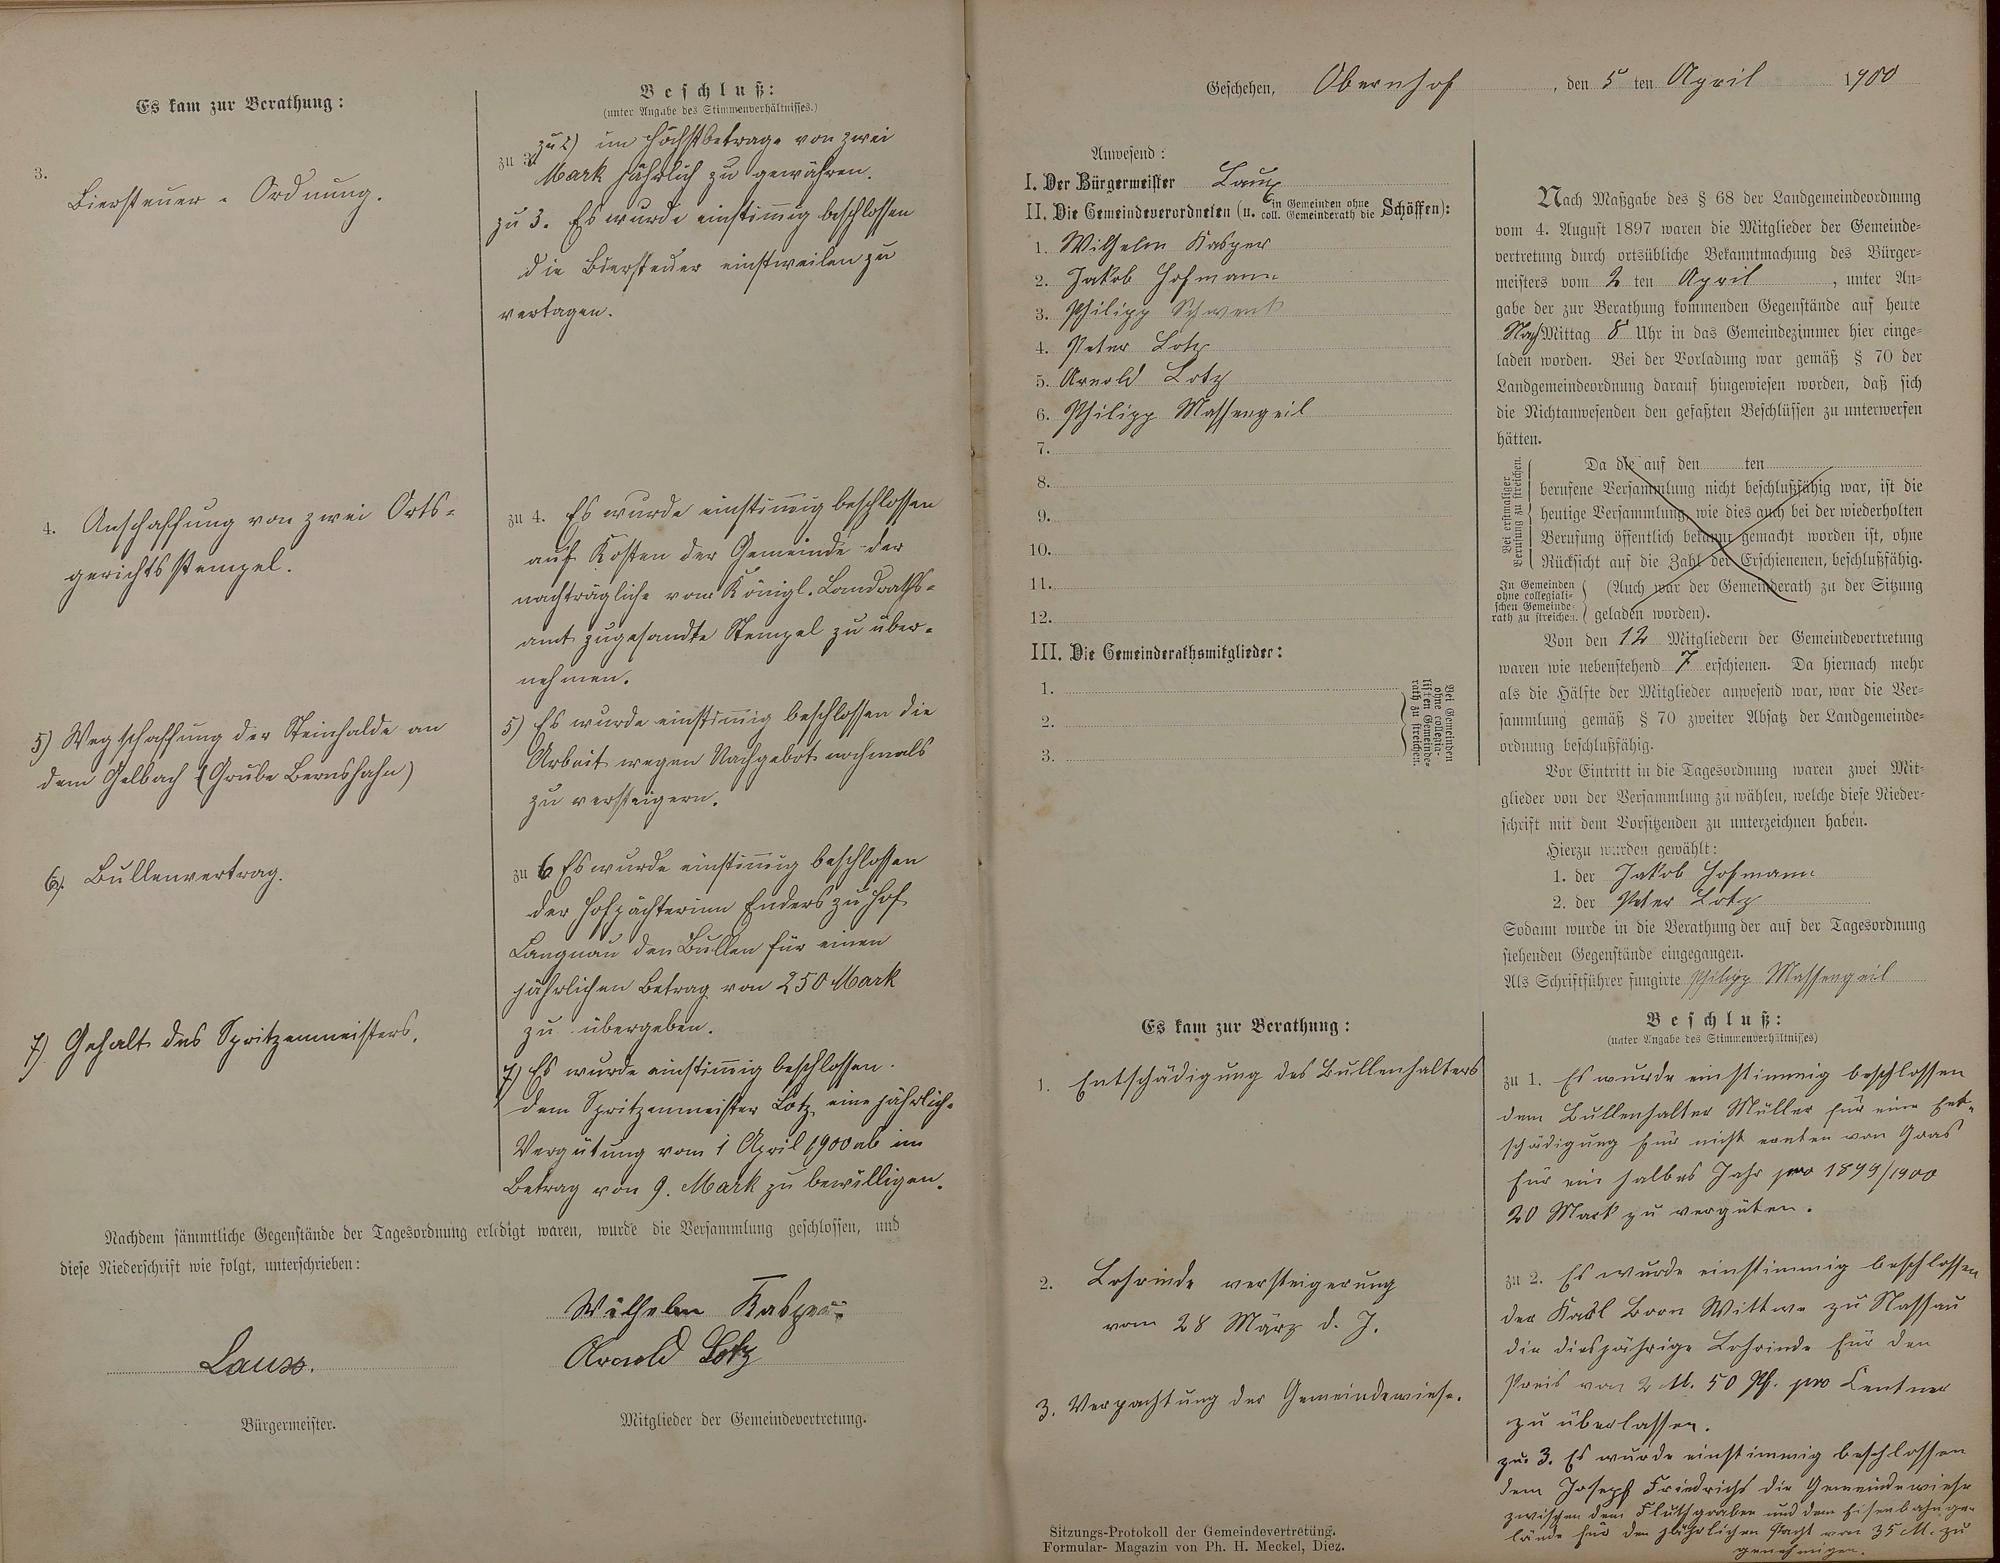 Es kam zur Berathung:
3.
Biersteuer-Ordnung.
4. Anschaffung von zwei Orts-
gerichtsstempel.
5) Wegschaffung der Steinhalde an
dem Gelbach (Grube Bernshahn)
6. Bullenvertrag.
7) Gehalt des Spritzenmeisters.
Beschluß:
(unter Angabe des Stimmenverhältnisses.)
zu 2) im Höchstbetrage von zwei
Mark jährlich zu gewähren.
zu 3. Es wurde einstimmig beschlossen
die Biersteuer einstweilen zu
vertagen.
zu 4. Es wurde einstimmig beschlossen
auf Kosten der Gemeinde der
nachträgliche vom Königl. Landraths-
amt zugesandte Stempel zu über-
nehmen.
5) Es wurde einstimmig beschlossen die
Arbeit wegen Nachgebot nochmals
zu versteigern.
zu 6 Es wurde einstimmig beschlossen
der Hofpächterinn Enders zu Hof
Langnau den Bullen für einen
jährlichen Betrag von 250 Mark
zu übergeben.
7) Es wurde einstimmig beschlossen.
dem Spritzenmeister Lotz eine jährliche
Vergütung vom 1 April 1900 ab im
Betrag von 9. Mark zu bewilligen.
Nachdem sämmtliche Gegenstände der Tagesordnung erledigt waren, wurde die Versammlung geschlossen, und
diese Niederschrift wie folgt, unterschrieben:
Wilhelm Kasper
Arnold Lotz
Laux.
Bürgermeister.
Mitglieder der Gemeindevertretung.
Geschehen, Obernhof, den 5 ten April 1900
Anwesend:
I. Der Bürgermeister Laux
II. Die Gemeindeverordneten (u. in Gemeinden ohne coll. Gemeinderath die Schöffen):
1. Wilhelm Kasper
2. Jakob Hofmann
3. Philipp Schwenk
4. Peter Lotz
5. Arnold Lotz
6. Philipp Massengeil
7.
8.
9.
10.
11.
12.
III. Die Gemeinderathsmitglieder:
1.
2.
3.
Bei Gemeinden ohne collegialischen Gemeinderath zu streichen.
Nach Maßgabe des § 68 der Landgemeindeordnung
vom 4. August 1897 waren die Mitglieder der Gemeinde-
vertretung durch ortsübliche Bekanntmachung des Bürger-
meisters vom 2 ten April, unter An-
gabe der zur Berathung kommenden Gegenstände auf heute
Nach Mittag 8 Uhr in das Gemeindezimmer hier einge-
laden worden. Bei der Vorladung war gemäß § 70 der
Landgemeindeordnung darauf hingewiesen worden, daß sich
die Nichtanwesenden den gefaßten Beschlüssen zu unterwerfen
hätten.
Bei erstmaliger Berufung zu streichen.
Da die auf den ten
berufene Versammlung nicht beschlußfähig war, ist die
heutige Versammlung, wie dies auch bei der wiederholten
Berufung öffentlich bekannt gemacht worden ist, ohne
Rücksicht auf die Zahl der Erschienenen, beschlußfähig.
In Gemeinden ohne collegialischen Gemeinderath zu streichen.
(Auch war der Gemeinderath zu der Sitzung
geladen worden).
Von den 12 Mitgliedern der Gemeindevertretung
waren wie nebenstehend 7 erschienen. Da hiernach mehr
als die Hälfte der Mitglieder anwesend war, war die Ver-
sammlung gemäß § 70 zweiter Absatz der Landgemeinde-
ordnung beschlußfähig.
Vor Eintritt in die Tagesordnung waren zwei Mit-
glieder von der Versammlung zu wählen, welche diese Nieder-
schrift mit dem Vorsitzenden zu unterzeichnen haben.
Hierzu wurden gewählt:
1. der Jakob Hofmann
2. der Peter Lotz
Sodann wurde in die Berathung der auf der Tagesordnung
stehenden Gegenstände eingegangen.
Als Schriftführer fungirte Philipp Massengeil
Es kam zur Berathung:
1. Entschädigung des Bullenhalters
2. Lohrinde versteigerung
vom 28 März d. J.
3. Verpachtung der Gemeindewiese.
Beschluß:
(unter Angabe des Stimmenverhältnisses)
zu 1. Es wurde einstimmig beschlossen
dem Bullenhalter Müller für eine Ent-
schädigung für nicht ernten von Gras
für ein halbes Jahr pro 1899/1900
20 Mark zu vergüten.
zu 2. Es wurde einstimmig beschlossen
der Karl Born Wittwe zu Nassau
die diesjährige Lohrinde für den
Preis von 2 M. 50 Pf. pro Centner
zu überlassen.
zu 3. Es wurde einstimmig beschlossen
dem Joseph Friedrichs die Gemeindewiese
zwischen dem Fluthgraben und dem Eisenbahnge-
lände für den jährlichen Pacht von 35 M. zu
genehmigen.
Sitzungs-Protokoll der Gemeindevertretung.
Formular-Magazin von Ph. H. Meckel, Diez.